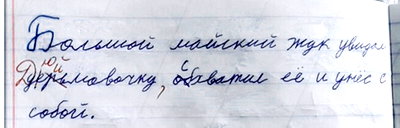 Большой майский жук увидал
юй
Дерьмовочку, обхватил её и унёс с
собой.